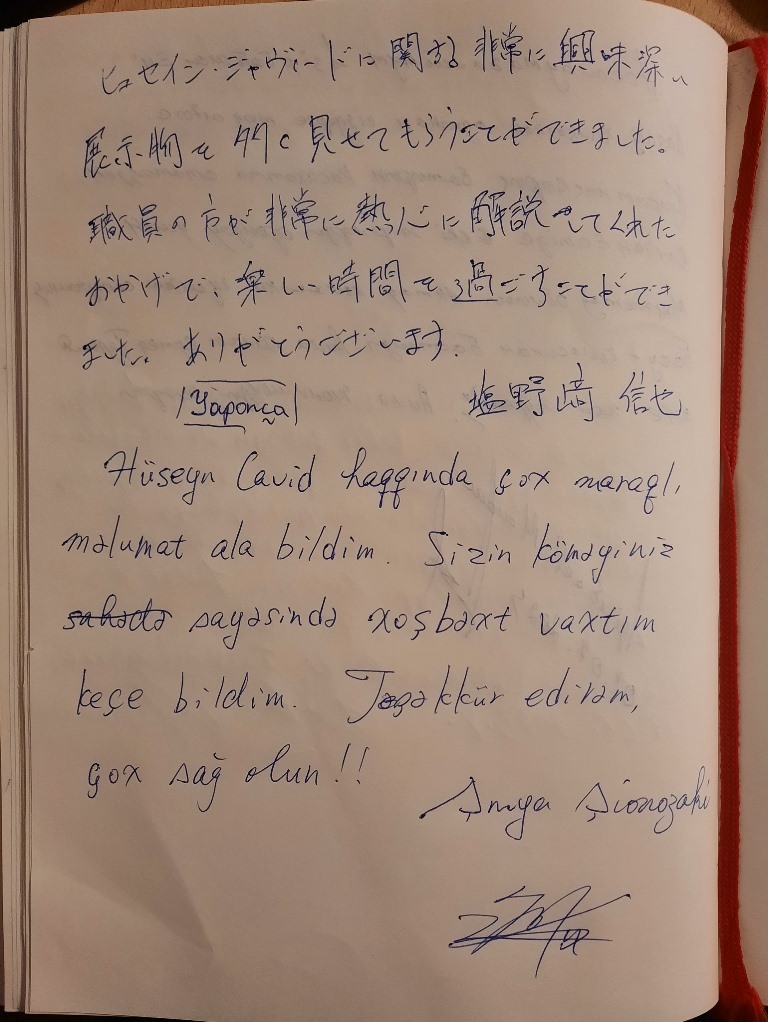 ヒュセイン・ジャヴィードに関する非常に興味深い
展示物を多く見せてもらうことができました。
職員の方が非常に熱心に解説してくれた
おかげで、楽しい時間を過ごすことができ
ました。ありがとうございます。
/Yaponca/
塩野﨑 信也
Hüseyn Cavid haqqında çox maraqlı,
məlumat ala bildim. Sizin köməyiniz
sayəsində xoşbəxt vaxtım
keçe bildim. Təşəkkür edirəm,
çox sağ olun!!
Şinya Şionozaki